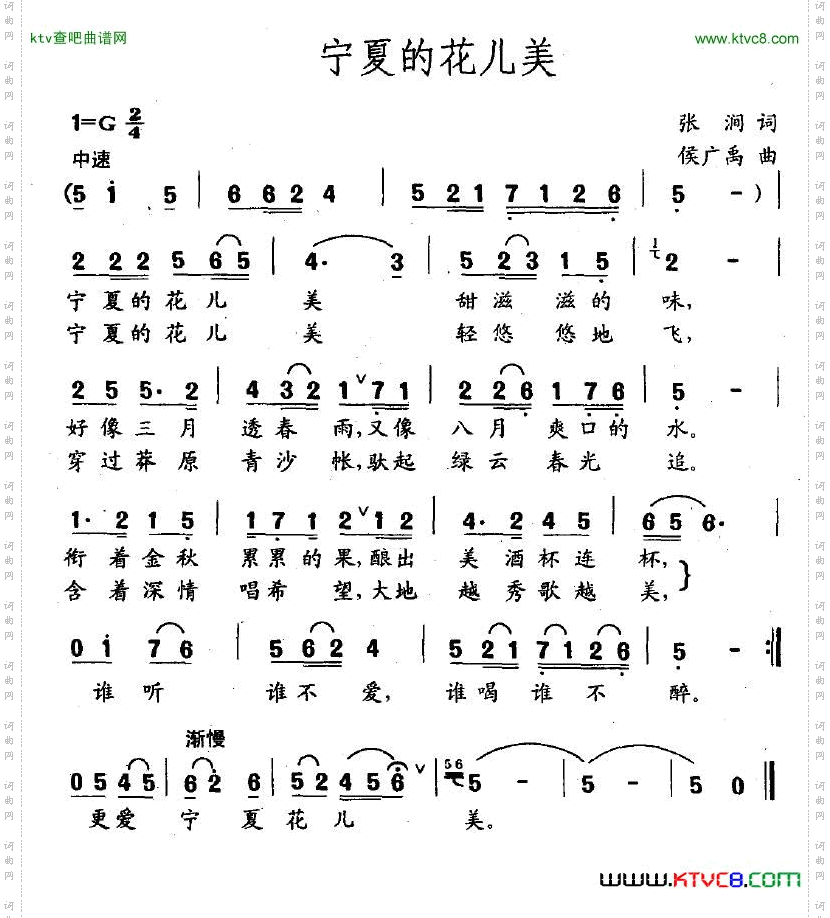 ktv查吧曲谱网
www.ktvc8.com
宁夏的花儿美
1=G 2/4
张 涧 词
中速
侯广禹 曲
(5 i 5 | 6 6 2 4 | 5 2 1 7 1 2 6 | 5 - ) |
2 2 2 5 6 5 | 4· 3 | 5 2 3 1 5 | 2 - |
宁夏的花儿 美 甜滋 滋的 味,
宁夏的花儿 美 轻悠 悠地 飞,
2 5 5· 2 | 4 3 2 1 ∨ 7 1 | 2 2 6 1 7 6 | 5 - |
好像三月 透春 雨,又像 八月 爽口的 水。
穿过莽原 青沙 帐,驮起 绿云 春光 追。
1· 2 1 5 | 1 7 1 2 ∨ 1 2 | 4· 2 4 5 | 6 5 6· |
衔着金秋 累累的果,酿出 美酒杯连 杯,
含着深情 唱希 望,大地 越秀歌越 美,
0 i 7 6 | 5 6 2 4 | 5 2 1 7 1 2 6 | 5 - :||
谁听 谁不 爱, 谁喝谁 不 醉。
渐慢
0 5 4 5 | 6 2 6 | 5 2 4 5 6 ∨ | 56 5 - | 5 - | 5 0 ||
更爱 宁 夏花儿 美。
WWW.KTVC8.COM
词曲网